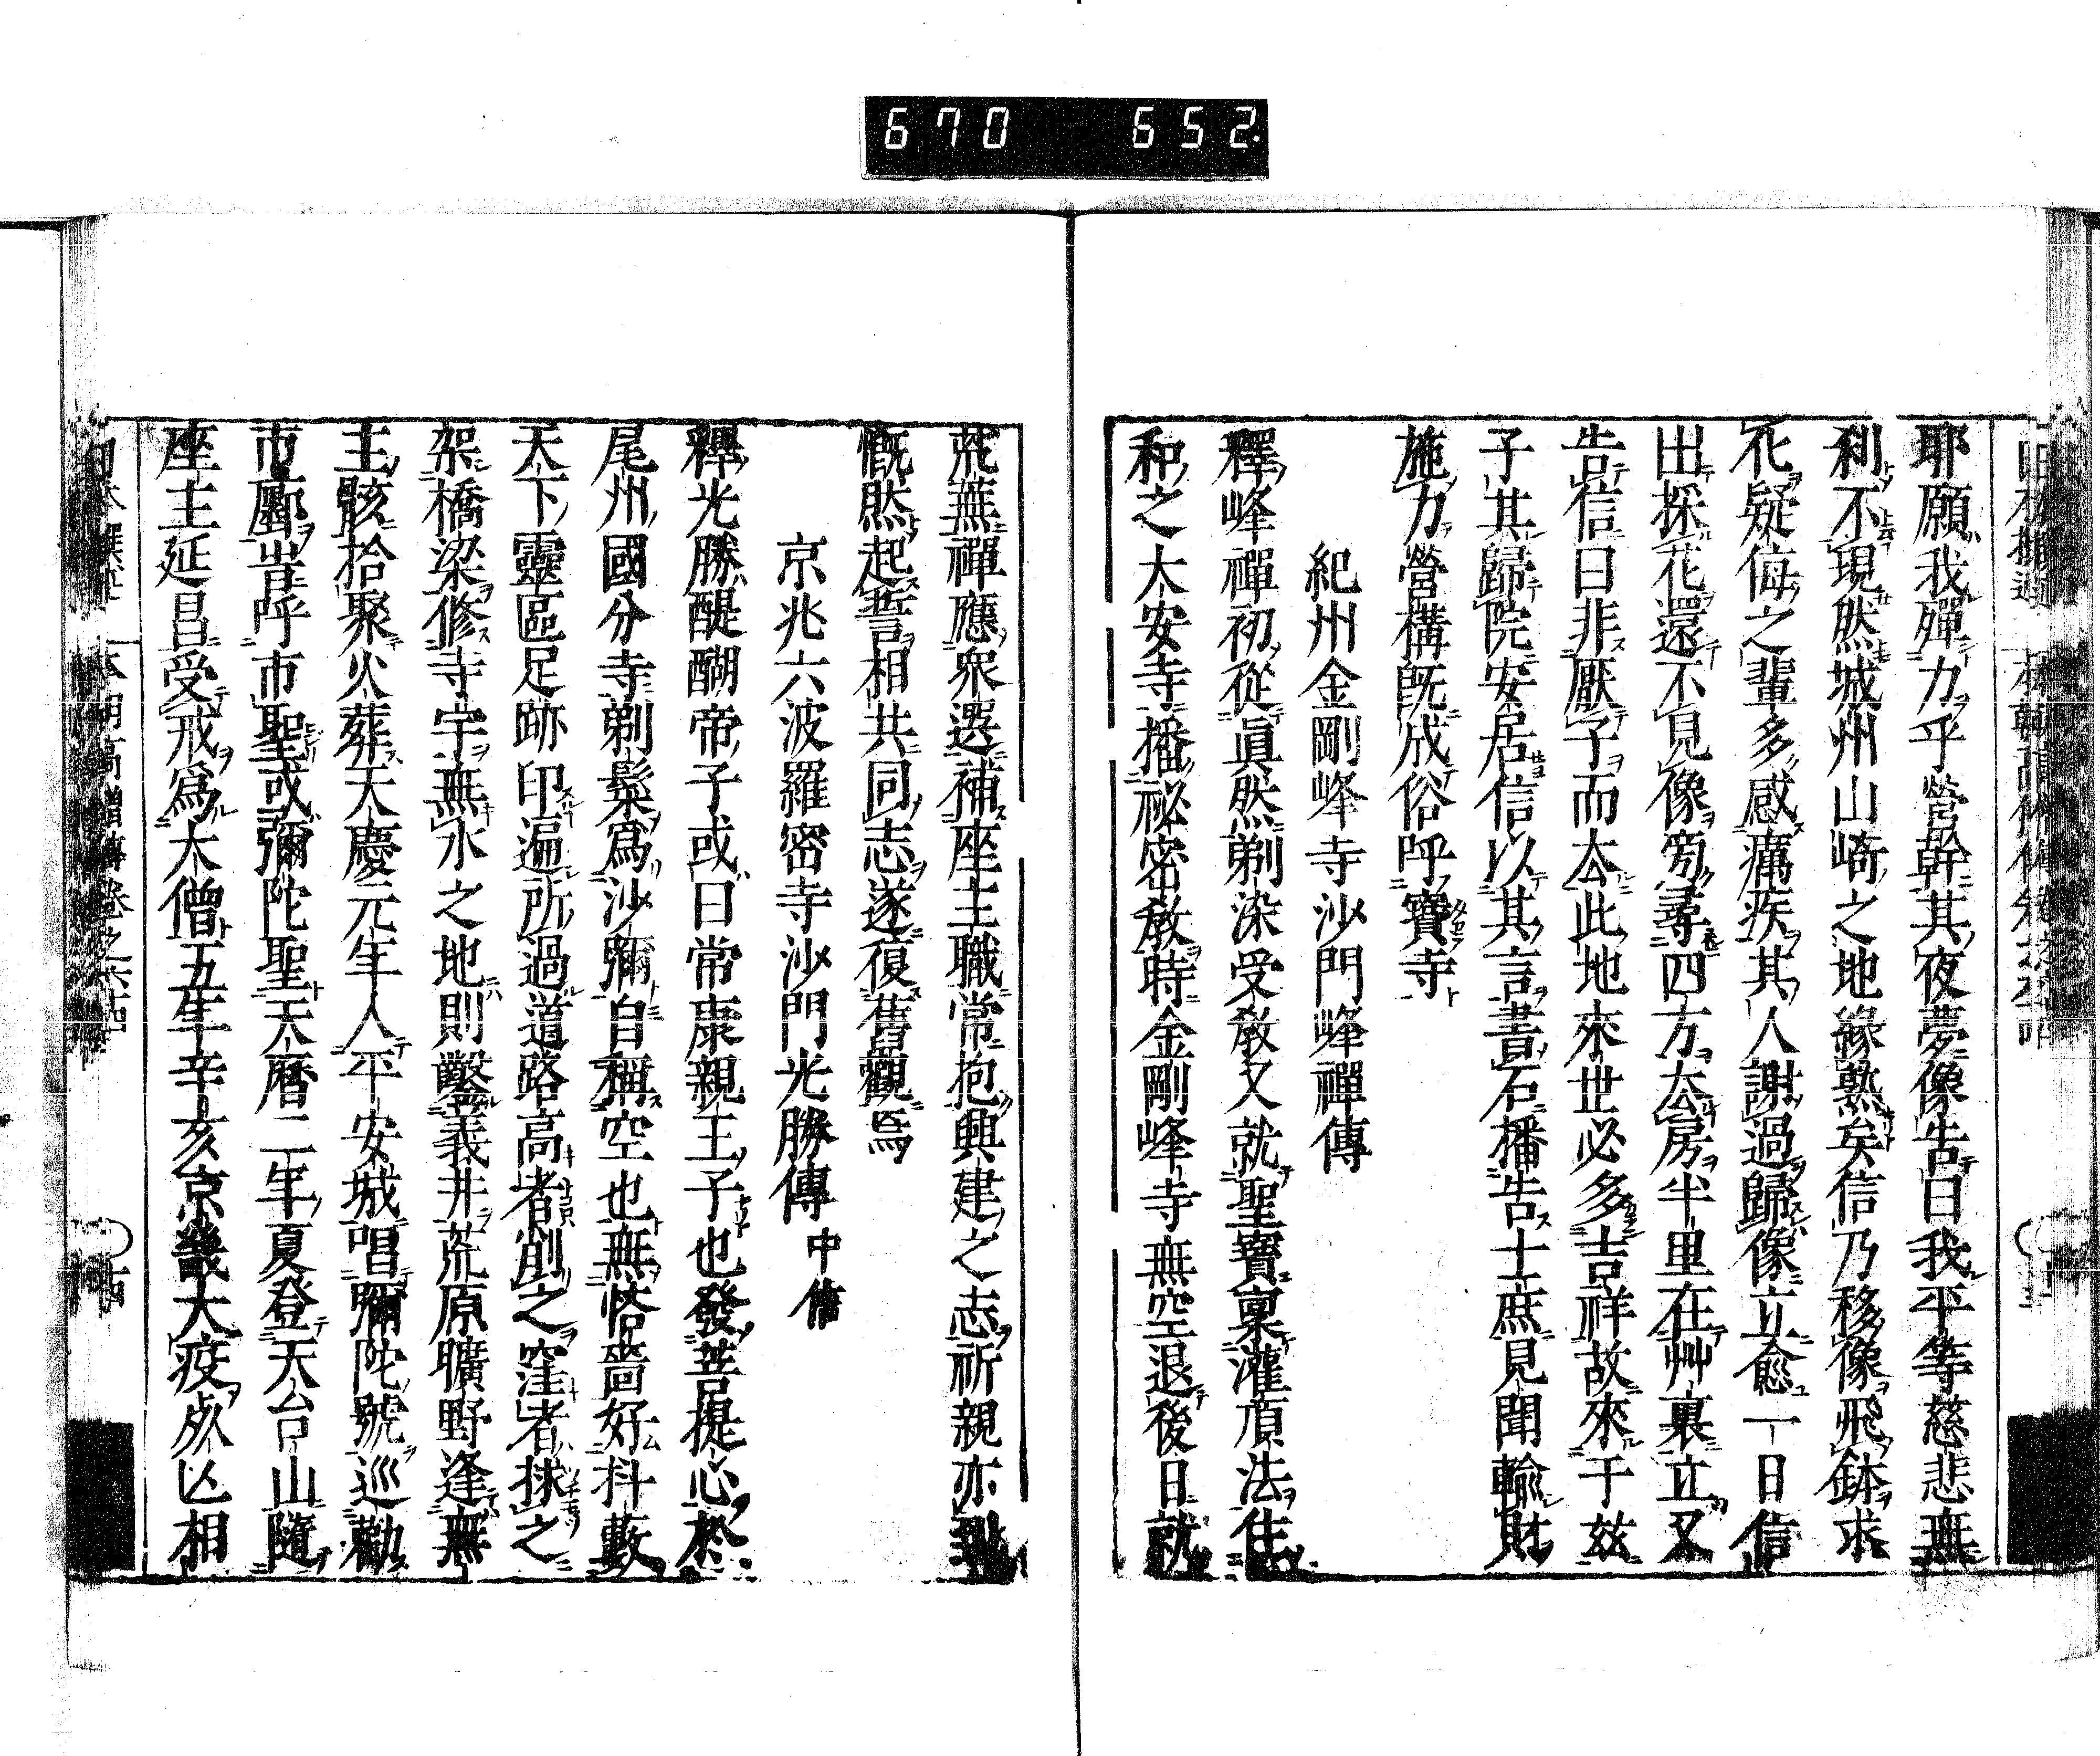 670 652
耶願我殫力乎營幹其夜夢像告曰我平等慈悲無
利不現然城州山崎之地緣熟矣信乃移像飛鉢求
化疑侮之輩多感癘疾其人謝過歸像立愈一日信
出採花還不見像窮尋四方厺房半里在艸裏立又
告信曰非厭子而厺此地來世必多吉祥故來于玆
子其歸院安居信以其言書石播告士庶見聞輸財
施力營構既成俗呼寶寺
紀州金剛峰寺沙門峰禪傳
釋峰禪初從眞然剃染受敎又就聖寶稟灌頂法住
和之大安寺播祕密敎時金剛峰寺無空退後日就
荒蕪禪應衆選補座主職常抱興建之志祈親亦到
慨然起誓相共同志遂復舊觀焉
京兆六波羅密寺沙門光勝傳 中信
釋光勝醍醐帝子或曰常康親王子也發菩提心於
尾州國分寺剃髮爲沙彌自稱空也無恪嗇好抖藪
天下靈區足跡印遍所過道路高者削之窪者抹之
架橋梁修寺宇無水之地則鑿義井荒原曠野逢無
主骸拾聚火葬天慶元年入平安城唱彌陀號巡勸
市鄽皆呼市聖或彌陀聖天曆二年夏登天台山隨
座主延昌受戒爲大僧五年辛亥京畿大疫死亾相
本朝高僧傳卷之六十四